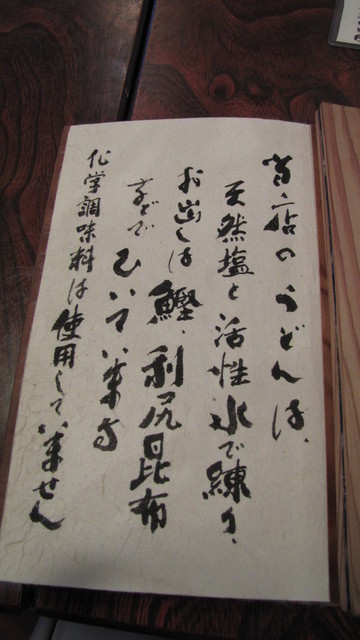 当店のうどんは、
天然塩と活性水で練り、
お出しは鰹、利尻昆布
などでひいています
化学調味料は使用していません